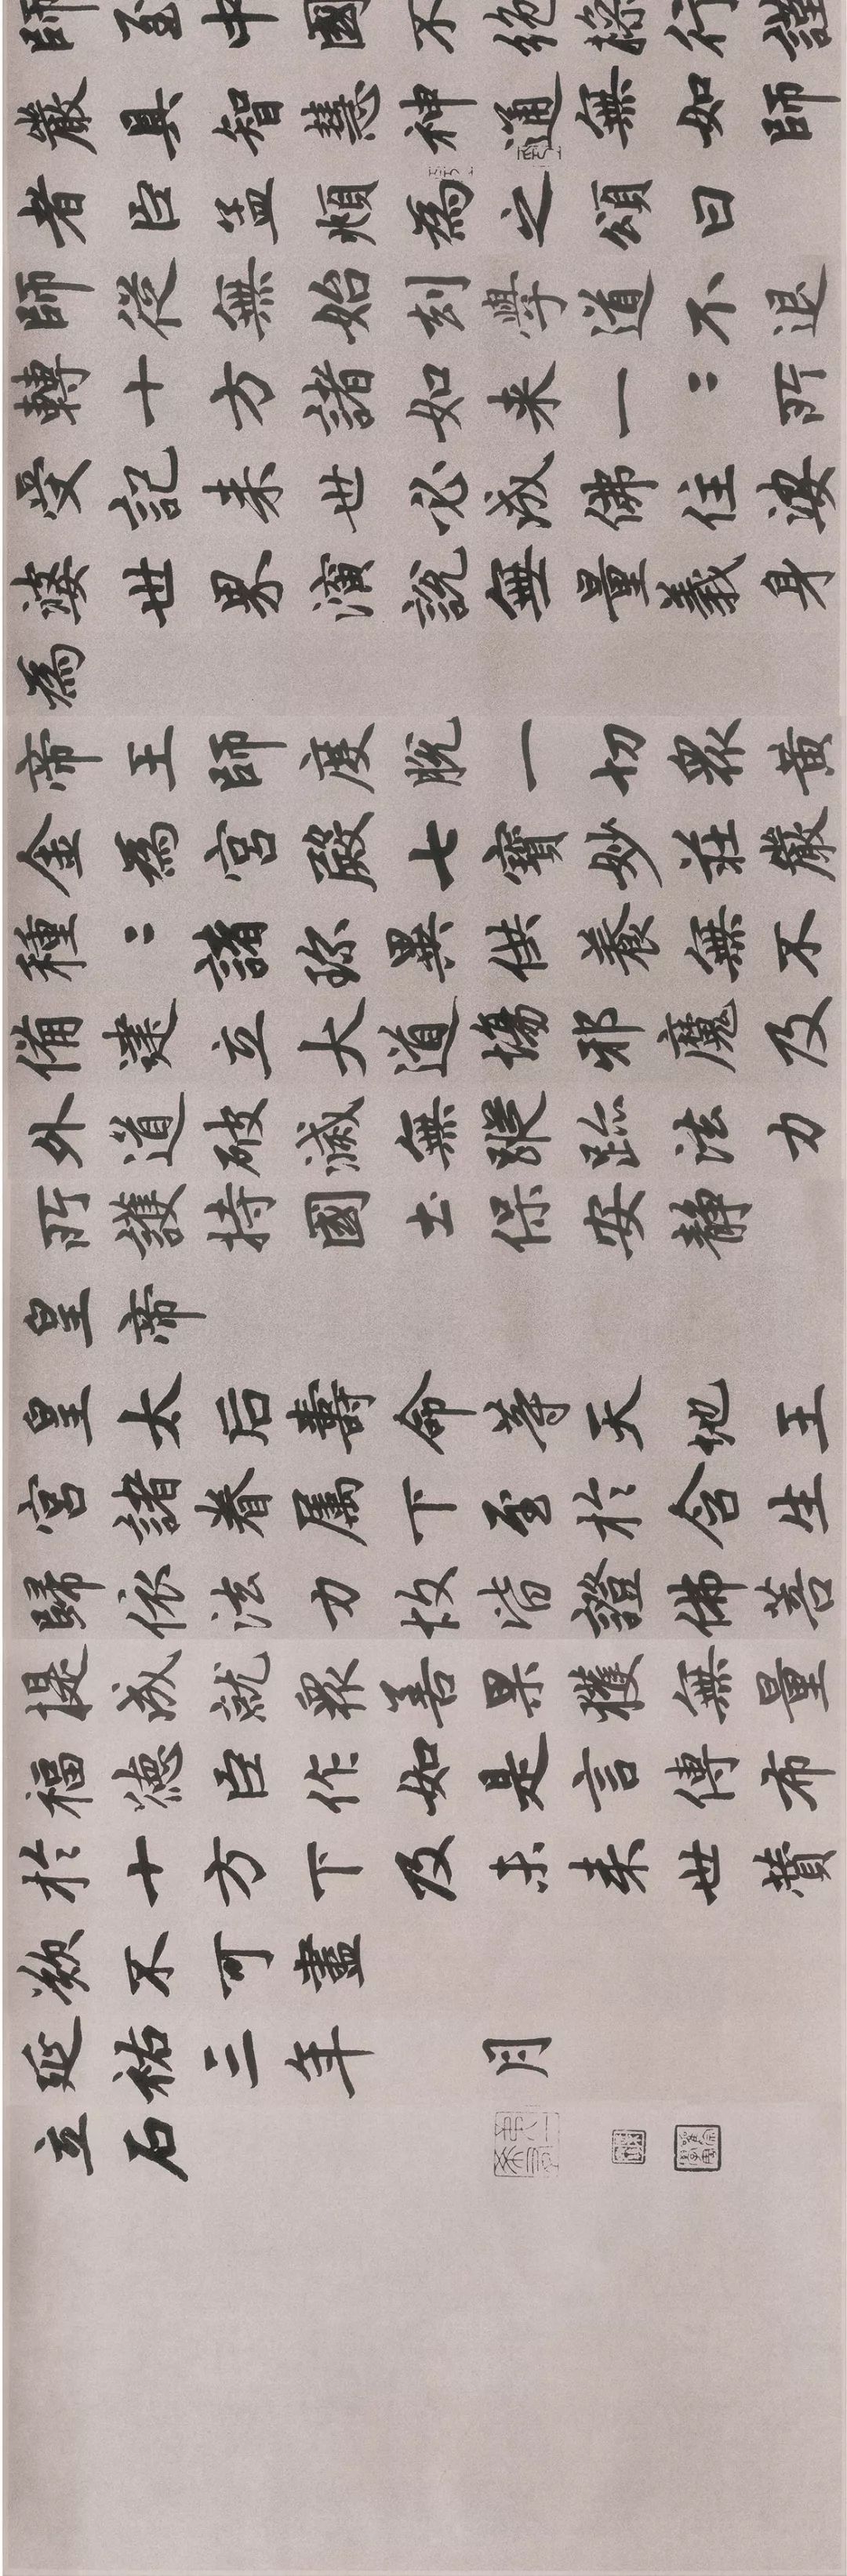 師至中國不絕操行謹
嚴具智慧神通無如師
者臣孟頫為之頌曰
師從無始刦學道不退
轉十方諸如来一〻所
受記来世必成佛住娑
婆世界演説無量義身
為
帝王師度脫一切眾黄
金為宫殿七寶妙莊嚴
種〻諸珎異供養無不
備建立大道場邪魔及
外道破滅無蹤跡法力
所護持國土保安静
皇帝
皇太后壽命等天地王
宫諸眷屬下至於含生
歸依法力故皆證佛菩
提成就眾善果獲無量
福德臣作如是言傳布
於十方下及未来世賛
歎不可盡
延祐三年 月
立石